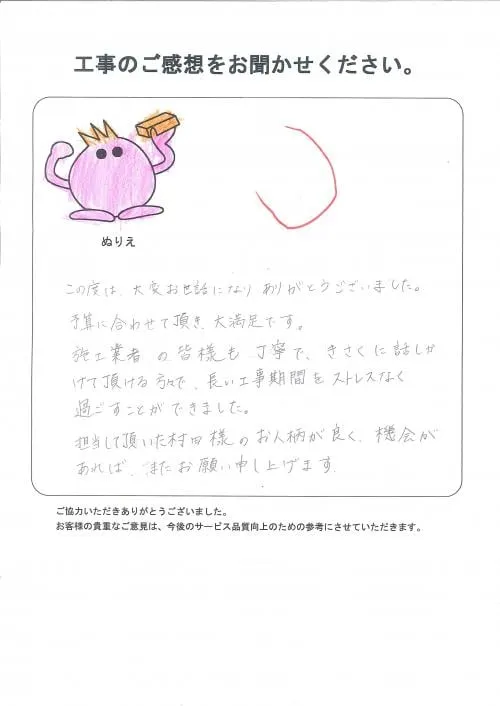 工事のご感想をお聞かせください。
ぬりえ
この度は、大変お世話になり ありがとうございました。
予算に合わせて頂き、大満足です。
施工業者の皆様も 丁寧で、きさくに話しか
けて頂ける方々で、長い工事期間をストレスなく
過ごすことができました。
担当して頂いた村田様のお人柄が良く、機会が
あれば、またお願い申し上げます。
ご協力いただきありがとうございました。
お客様の貴重なご意見は、今後のサービス品質向上のための参考にさせていただきます。